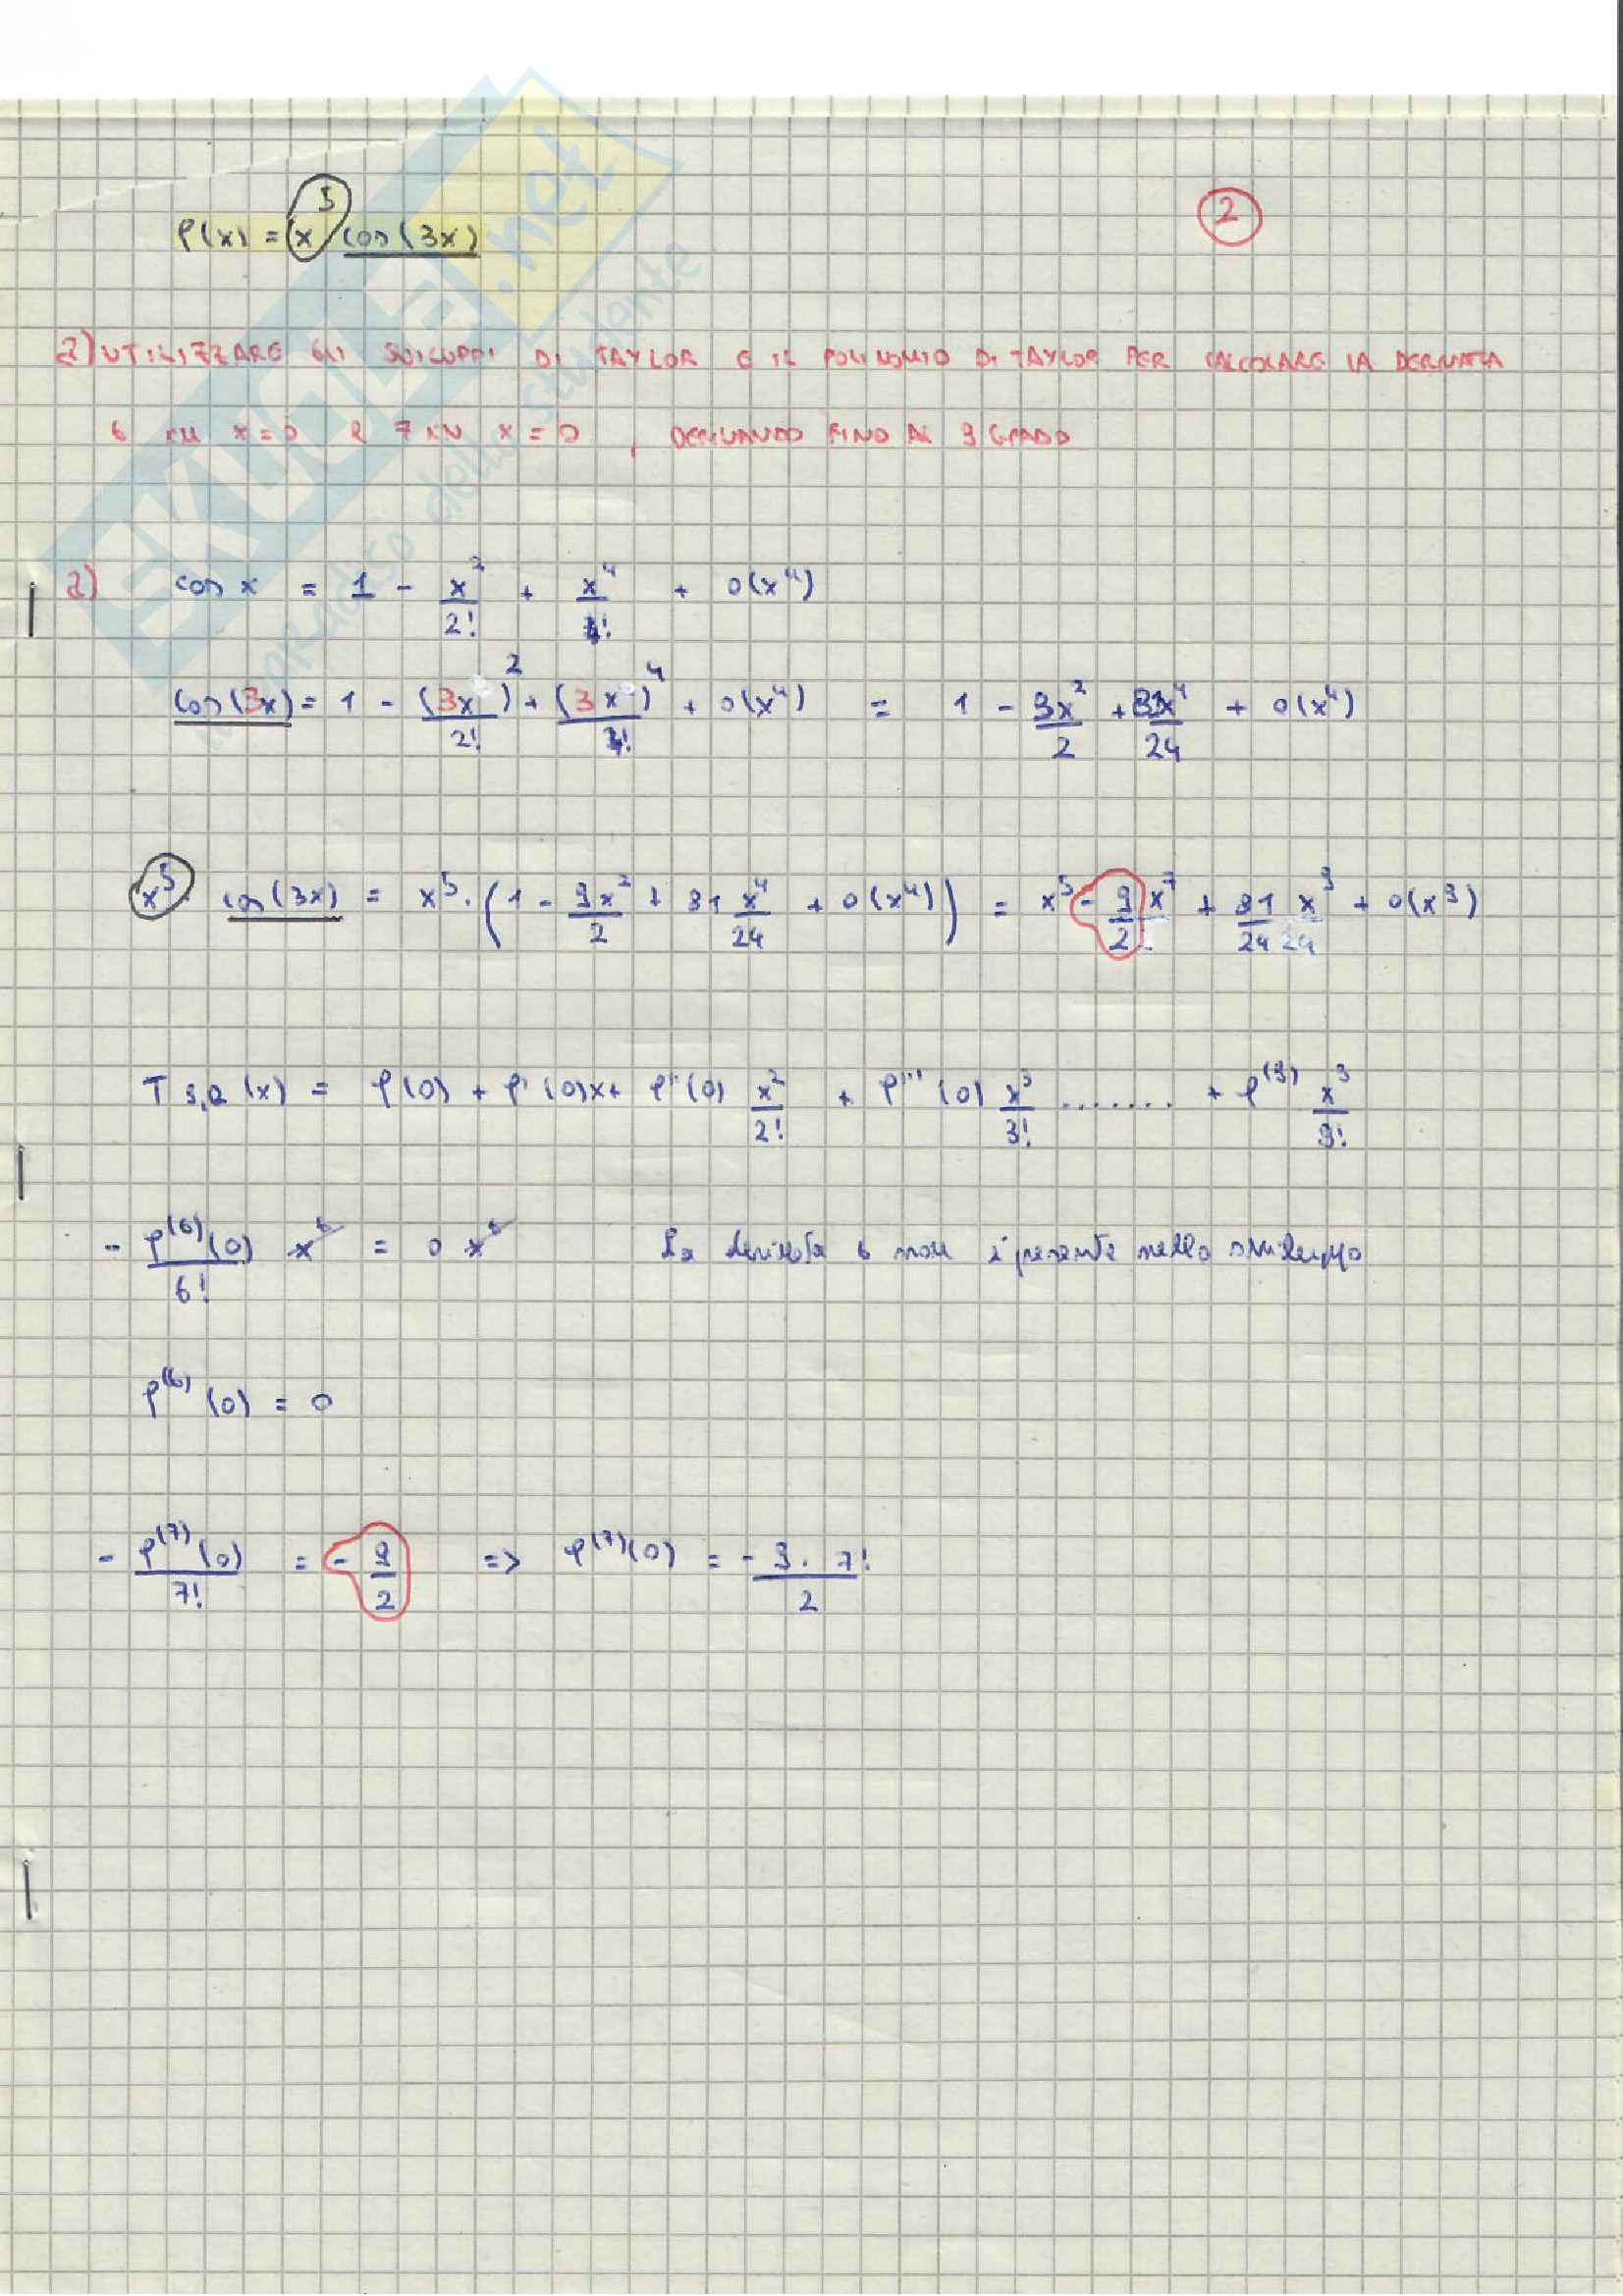 f(x) = x⁵ cos(3x)
2
a) UTILIZZARE GLI SVILUPPI DI TAYLOR E IL POLINOMIO DI TAYLOR PER CALCOLARE LA DERIVATA
6 IN x=0 e 7 IN x=0, DERIVANDO FINO AL 9 GRADO
a) cos x = 1 - x²/2! + x⁴/4! + o(x⁴)
cos(3x) = 1 - (3x)²/2! + (3x)⁴/4! + o(x⁴) = 1 - 9x²/2 + 81x⁴/24 + o(x⁴)
x⁵ cos(3x) = x⁵ · (1 - 9x²/2 + 81 x⁴/24 + o(x⁴)) = x⁵ - 9/2 x⁷ + 81/24 x⁹ + o(x⁹)
T 9,0 (x) = f(0) + f'(0)x + f''(0) x²/2! + f'''(0) x³/3! ........ + f⁽⁹⁾ x⁹/9!
- f⁽⁶⁾(0)/6! x⁶ = 0 x⁶ La derivata 6 non è presente nello sviluppo
f⁽⁶⁾(0) = 0
- f⁽⁷⁾(0)/7! = - 9/2 => f⁽⁷⁾(0) = - 9 · 7!/2
SKUOLA.net